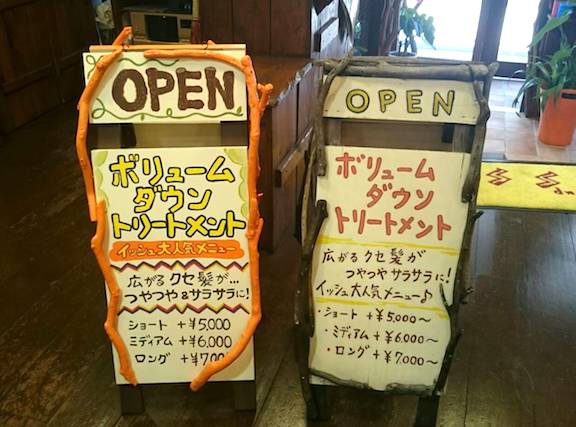 OPEN
ボリューム
ダウン
トリートメント
イッシュ大人気メニュー
広がるクセ髪が...
つやつや&サラサラに!
ショート +¥5,000
ミディアム +¥6,000
ロング +¥7,000
OPEN
ボリューム
ダウン
トリートメント
広がるクセ髪が
つやつやサラサラに!
イッシュ大人気メニュー♪
・ショート +¥5,000〜
・ミディアム +¥6,000〜
・ロング +¥7,000〜